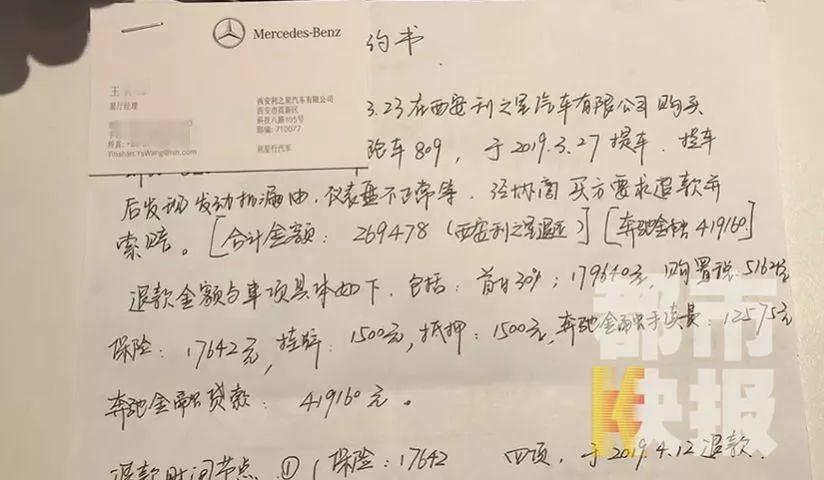 Mercedes-Benz
约书
王
展厅经理
西安利之星汽车有限公司
西安市高新区
科技八路105号
邮编: 710077
利星行汽车
手
传真:
Yinshan.YsWang@lsh.com
3.23在西安利之星汽车有限公司购买
跑车809，于2019.3.27提车．提车
后发现发动机漏油，仪表盘不正常等．经协商买方要求退款并
索赔。[合计金额：269478（西安利之星退还］[奔驰金融419160]
退款金额与事项具体如下．包括：首付30%：179640元，购置税:51621元
保险：17642元，挂牌：1500元，抵押：1500元，奔驰金融手续费：12575元
奔驰金融贷款：419160元。
退款时间节点①（保险：17642 四项，于2019.4.12退款．
都市快报